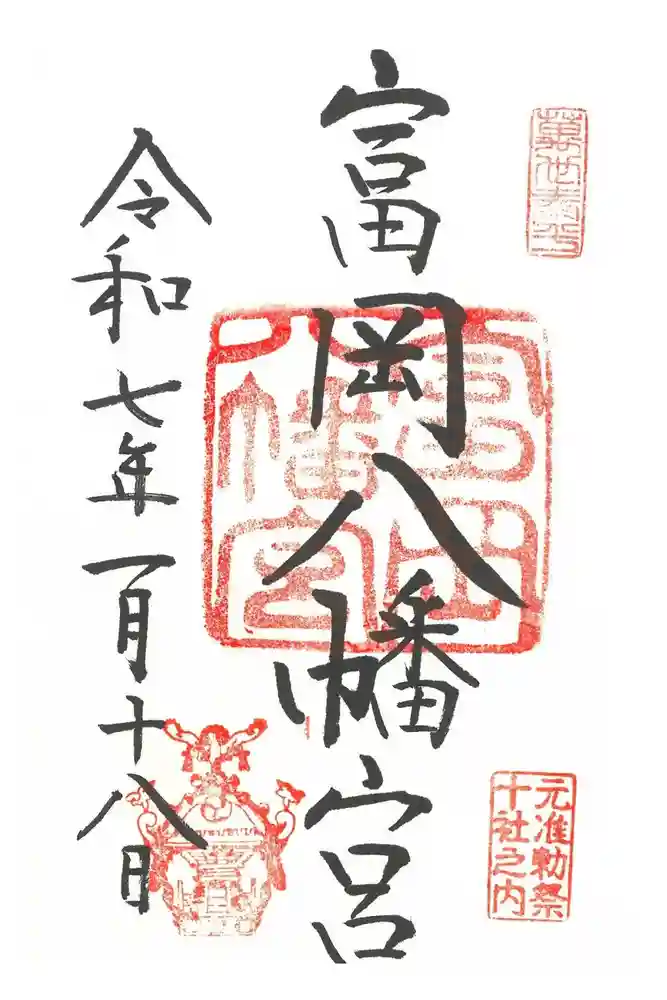 萬世泰平
元准勅祭
十社之内
富岡八幡宮
富岡
八幡宮
令和七年一月十八日